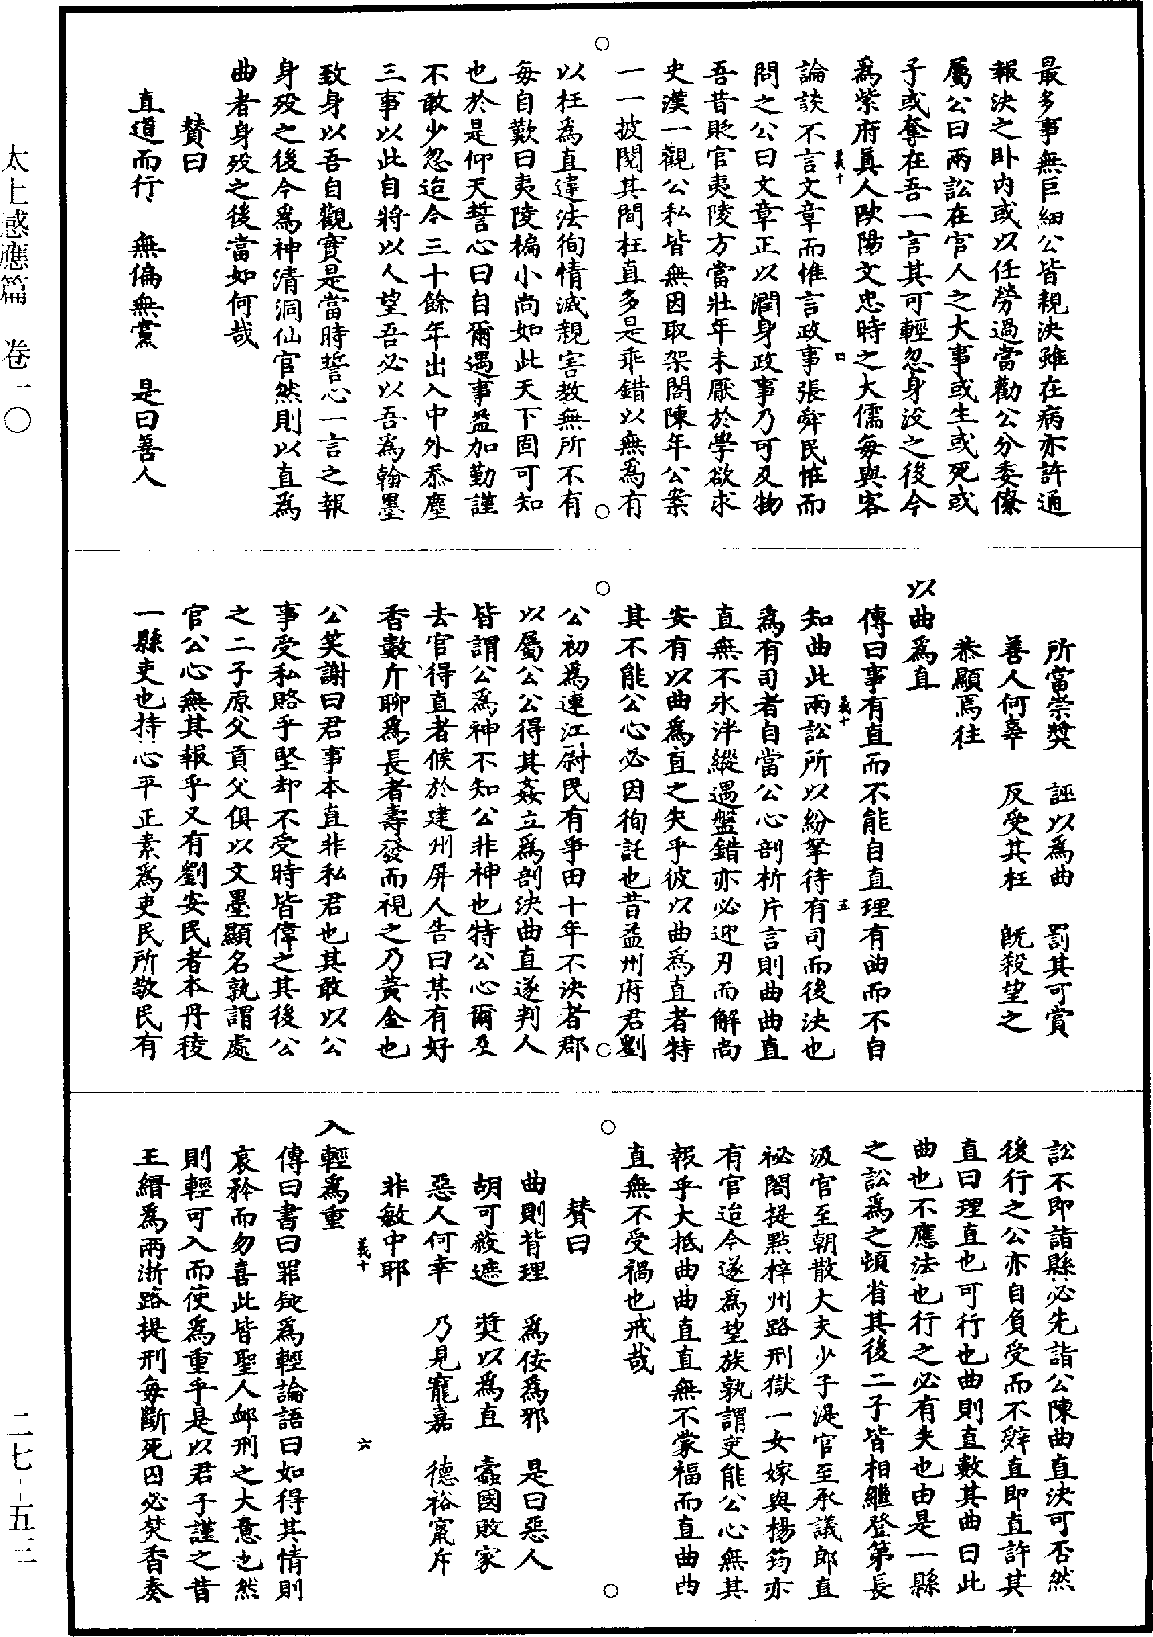 最多事無巨細公皆親決雖在病亦許通
報決之卧內或以任勞過當勸公分委僚
屬公曰兩訟在官人之大事或生或死或
予或奪在吾一言其可輕忽身没之後今
為紫府真人歐陽文忠時之大儒每與客
論談不言文章而惟言政事張舜民恠而
問之公曰文章正以潤身政事乃可及物
吾昔貶官夷陵方當壯年未厭於學欲求
史漢一觀公私皆無因取架閣陳年公案
一一披閱其間枉直多是乖錯以無為有
以枉為直違法徇情滅親害教無所不有
每自歎曰夷陵褊小尚如此天下固可知
也於是仰天誓心曰自爾遇事益加勤謹
不敢少忽迨今三十餘年出入中外忝塵
三事以此自將以人望吾必以吾為翰墨
致身以吾自觀實是當時誓心一言之報
身歿之後今為神清洞仙官然則以直為
曲者身歿之後當如何哉
賛曰
直道而行 無偏無黨 是曰善人
所當崇獎 誣以為曲 罰其可賞
善人何辜 反受其枉 旣殺望之
恭顯焉往
以曲為直
傳曰事有直而不能自直理有曲而不自
知曲此兩訟所以紛拏待有司而後決也
為有司者自當公心剖析片言則曲曲直
直無不氷泮縱遇盤錯亦必迎刃而解尚
安有以曲為直之失乎彼以曲為直者特
其不能公心必因徇託也昔益州府君劉
公初為連江尉民有爭田十年不決者郡
以屬公公得其姦立為剖決曲直遂判人
皆謂公為神不知公非神也特公心爾及
去官得直者候於建州屏人告曰某有好
香數斤聊為長者壽發而視之乃黃金也
公笑謝曰君事本直非私君也其敢以公
事受私賂乎堅却不受時皆偉之其後公
之二子原父貢父俱以文墨顯名孰謂處
官公心無其報乎又有劉安民者本丹稜
一縣吏也持心平正素為吏民所敬民有
訟不即詣縣必先詣公陳曲直決可否然
後行之公亦自負受而不辤直即直許其
直曰理直也可行也曲則直數其曲曰此
曲也不應法也行之必有失也由是一縣
之訟為之頓省其後二子皆相繼登第長
汲官至朝散大夫少子湜官至承議郎直
祕閣提點梓州路刑獄一女嫁與楊筠亦
有官迨今遂為望族孰謂吏能公心無其
報乎大抵曲曲直直無不蒙福而直曲曲
直無不受禍也戒哉
賛曰
曲則背理 為侫為邪 是曰惡人
胡可蔽遮 奬以為直 蠹國敗家
惡人何幸 乃見寵嘉 德裕竄斥
非敏中耶
入輕為重
傳曰書曰罪疑為輕論語曰如得其情則
哀矜而勿喜此皆聖人邺刑之大意也然
則輕可入而使為重乎是以君子謹之昔
王縉為兩浙路提刑每斷死囚必焚香奏
義十
四
義十
五
義十
六
太上感應篇 卷一〇
二七-五三